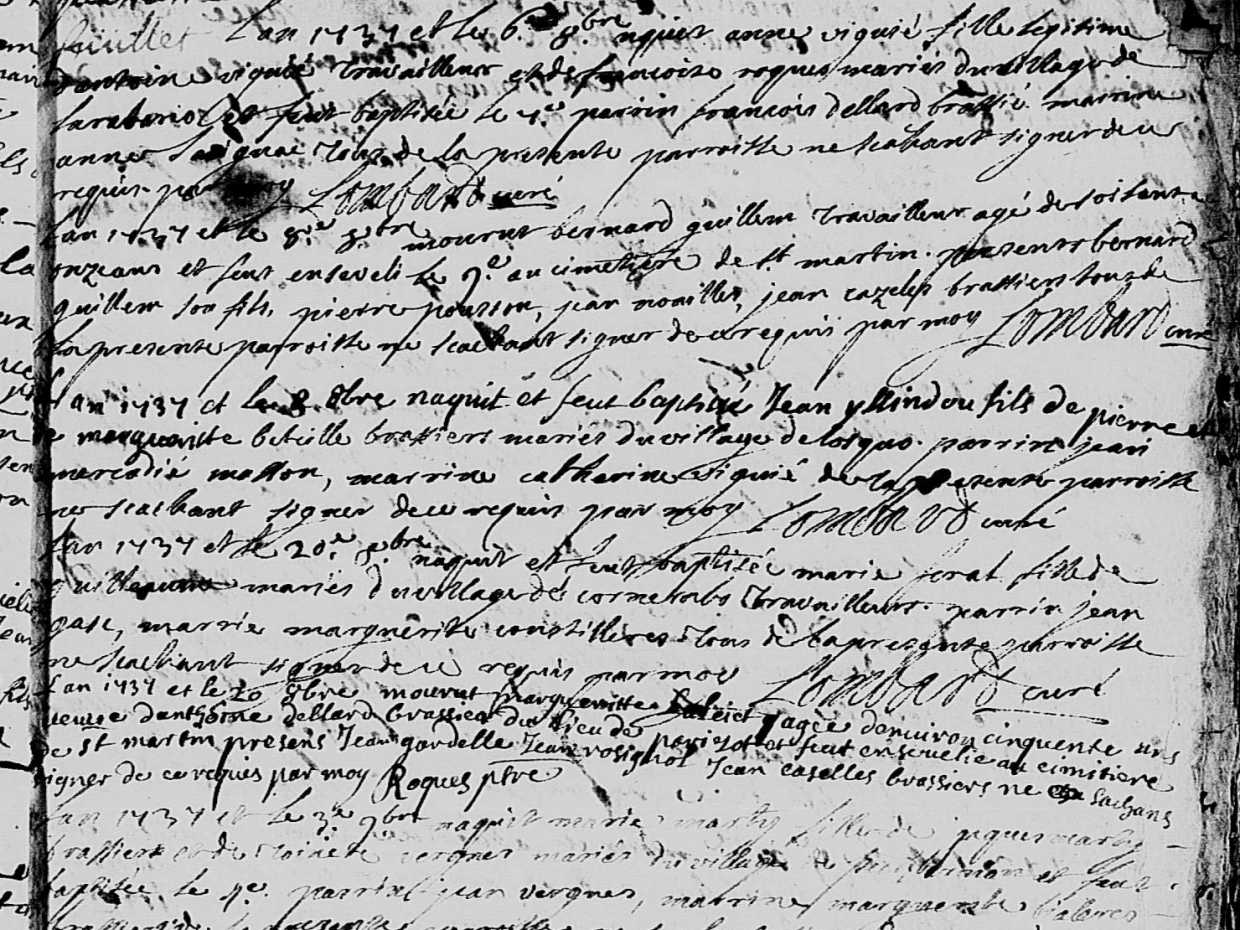 L'an 1737 et le 6.e 8.bre naquit anne viguié fille legitime
d'antoine viguié travailleur et de françoise roques mariés du village de
et feut baptisée le 7.e parrin françois dellard brassié marrine
anne tous de la presente parroisse ne scachant signer de ce
requis par moy Lombard curé
L'an 1737 et le 8.e 8.bre mourut bernard guillem travailleur agé de soisante
onze ans et feut enseveli le 9.e au cimetiere de S.t martin. presents bernard
guillem son fils, pierre pousson, jean nouilles, jean cazeles brassiers tous de
la presente parroisse ne scachant signer de ce requis par moy Lombard curé
L'an 1737 et le 8 8bre naquit et feut baptisé Jean fils de pierre et
de marguerite beteille brassiers mariés du village de parrin jean
mercadié masson, marrine catherine viguié de la presente parroisse
ne scachant signer de ce requis par moy Lombard curé
L'an 1737 et le 20.e 8bre naquit et feut baptisée marie fille de
guilleaume mariés du village de travailleurs. parrin jean
marrine marguerite tous de la presente parroisse
ne scachant signer de ce requis par moy Lombard curé
L'an 1737 et le 20 8bre mourut margueritte agée denviron cinquente ans
veuve danthoine dellard brassier du lieu de et feut ensevelie au cimitiere
de st martin presens Jean gardelle Jean rosignol Jean caselles brassiers ne sachans
signer de ce requis par moy Roques ptre
L'an 1737 et le 3.e 9bre naquit marie marty fille de jaques marty
brassier et de vergnes mariés du village de et feut
baptisée le 4.e parrin jean vergnes, marrine marguerite
brassiers de la presente parroisse